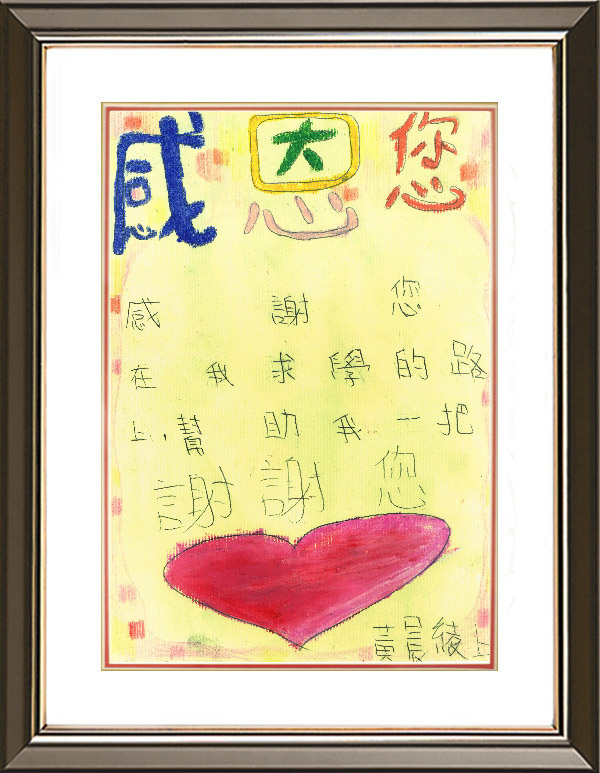 感恩您
感謝您
在我求學的路
上,幫助我一把
謝謝您
黃晨綾上